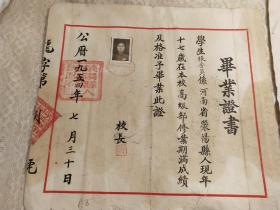 畢業證書
學生
河南省滎陽縣人現年
十七歲在本校高級部修業期滿成績
及格准予畢業此證
校長
公曆一九五四年七月三十日
字第